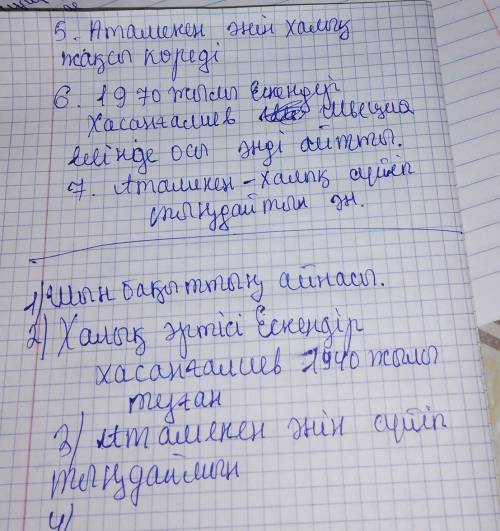 5. Атамекен әнін халық
жақсы көреді
6. 1970 жылы Ескендір
Хасанғалиев
елінде осы әнді айтты.
7. Атамекен - халық сүйіп
тыңдайтын ән.
1) Шын бақыттың айнасы.
2) Халық әртісі Ескендір
Хасанғалиев 1940 жылы
туған
3) Атамекен әнін сүйіп
тыңдаймын
4)